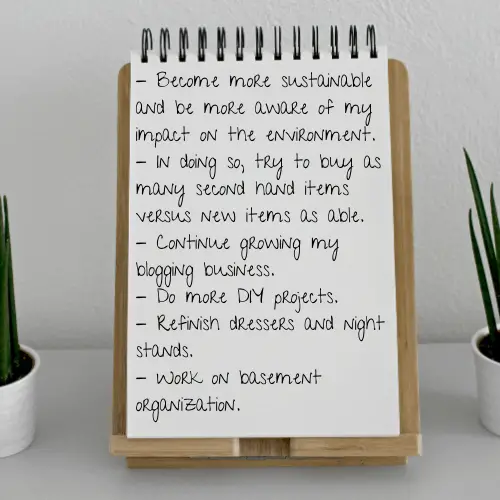 - Become more sustainable
and be more aware of my
impact on the environment.
- In doing so, try to buy as
many second hand items
versus new items as able.
- Continue growing my
blogging business.
- Do more DIY projects.
- Refinish dressers and night
stands.
- Work on basement
organization.